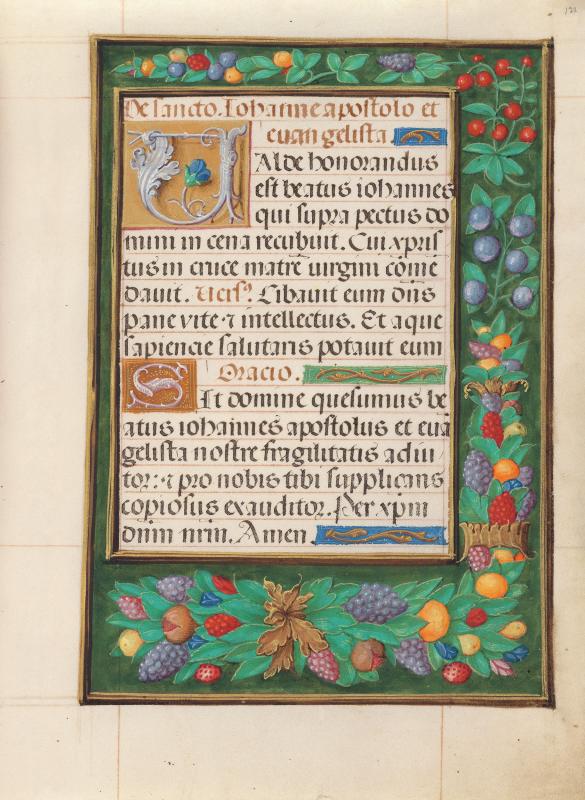 122
De sancto. Iohanne apostolo et
euangelista.
Valde honorandus
est beatus iohannes
qui supra pectus do
mini in cena recubuit. Cui xpris
tus in cruce matrē uirginē uirgini cōme
dauit. Ucisͬ. Cibauit eum dn̄s
pane vite ⁊ intellectus. Et aque
sapiencie salutaris potauit eum
Oracio.
Sit domine quesumus be
atus iohannes apostolus et eua
gelista nostre fragilitatis adiu
tor: ⁊ pro nobis tibi supplicans
copiosus exauditor. Per xpm
dnm nrm. Amen.